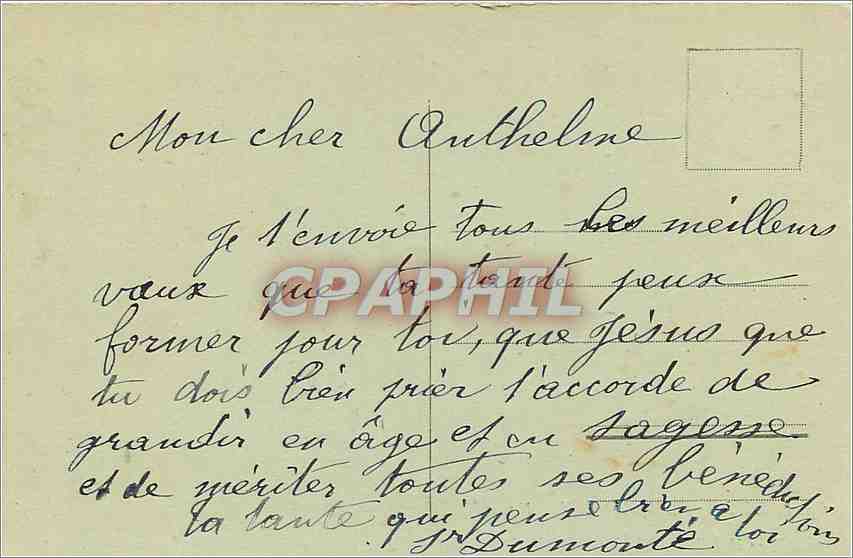 Mon cher Anthelme
Je t'envoie tous les meilleurs
vœux que ta tante peux
former pour toi, que Jésus que
tu dois bien prier t'accorde de
grandir en âge et en sagesse
et de mériter toutes ses bénédictions
ta tante qui pense bien à toi
Sr Dumonté
CPAPHIL